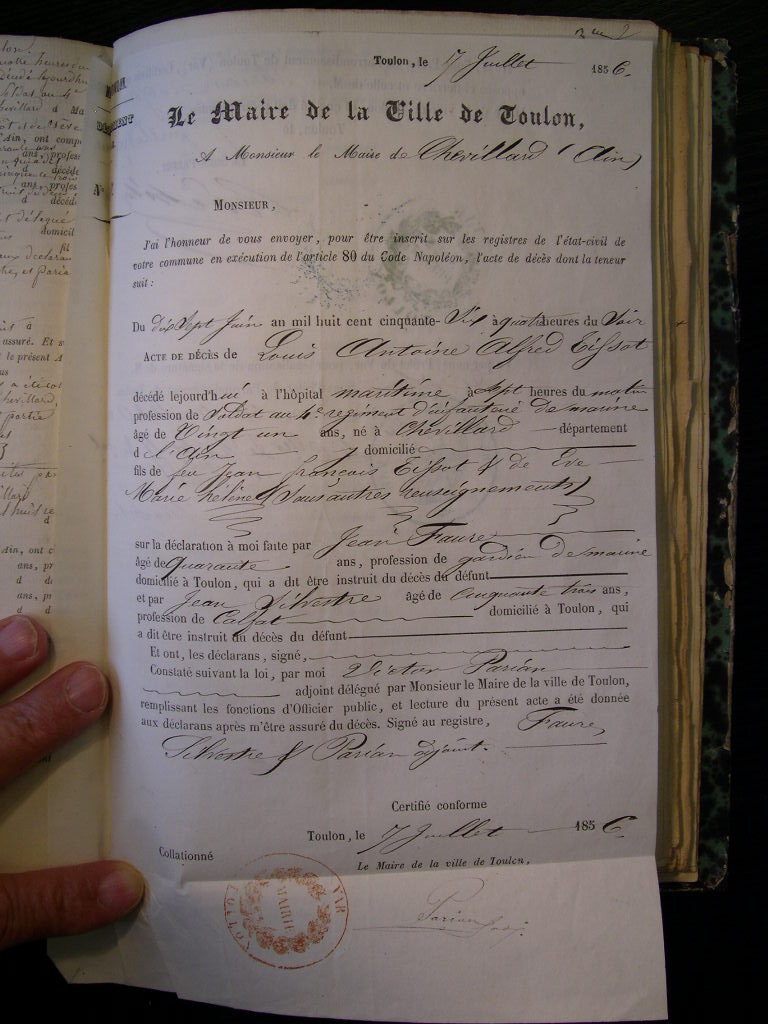 Toulon, le 17 Juillet 1856.
Le Maire de la Ville de Toulon,
A Monsieur le Maire de Chevillard (Ain)
MONSIEUR,
J'ai l'honneur de vous envoyer, pour être inscrit sur les registres de l'état-civil de
votre commune en exécution de l'article 80 du Code Napoléon, l'acte de décès dont la teneur
suit :
Du dix Sept Juin an mil huit cent cinquante-Six à quatre heures du Soir
ACTE DE DÉCÈS de Louis Antoine Alfred Tissot
décédé lejourd'hui à l'hôpital maritime à Sept heures du matin
profession de Soldat au 4e regiment d'infanterie de marine
âgé de Vingt un ans, né à Chevillard département
d l'Ain domicilié
fils de feu Jean françois Tissot & de Eve
Marie hélène (Sans autres renseignements)
sur la déclaration à moi faite par Jean Faure
âgé de quarante ans, profession de gardien de marine
domicilié à Toulon, qui a dit être instruit du décès du défunt
et par Jean Silvestre âgé de Cinquante trois ans,
profession de Calfat domicilié à Toulon, qui
a dit être instruit du décès du défunt
Et ont, les déclarans, signé,
Constaté suivant la loi, par moi Victor Parian
adjoint délégué par Monsieur le Maire de la ville de Toulon,
remplissant les fonctions d'Officier public, et lecture du présent acte a été donnée
aux déclarans après m'être assuré du décès. Signé au registre, Faure,
Silvestre & Parian adjoint.
Certifié conforme
Toulon, le 17 Juillet 1856
Collationné
Le Maire de la ville de Toulon,
Parian adj.
MAIRIE
TOULON
VAR